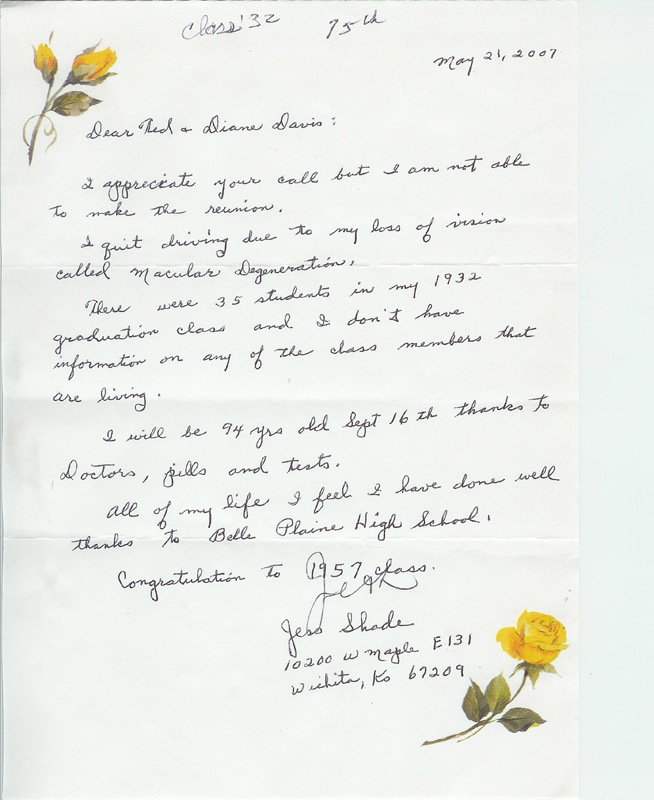 Class '32 75th
May 21, 2007
Dear Ted & Diane Davis:
I appreciate your call but I am not able
to make the reunion.
I quit driving due to my loss of vision
called Macular Degeneration.
There were 35 students in my 1932
graduation class and I don't have
information on any of the class members that
are living.
I will be 94 yrs old Sept 16th thanks to
Doctors, pills and tests.
All of my life I feel I have done well
thanks to Belle Plaine High School.
Congratulation to 1957 class.
Jess Shade
10200 W Maple E131
Wichita, Ks 67209